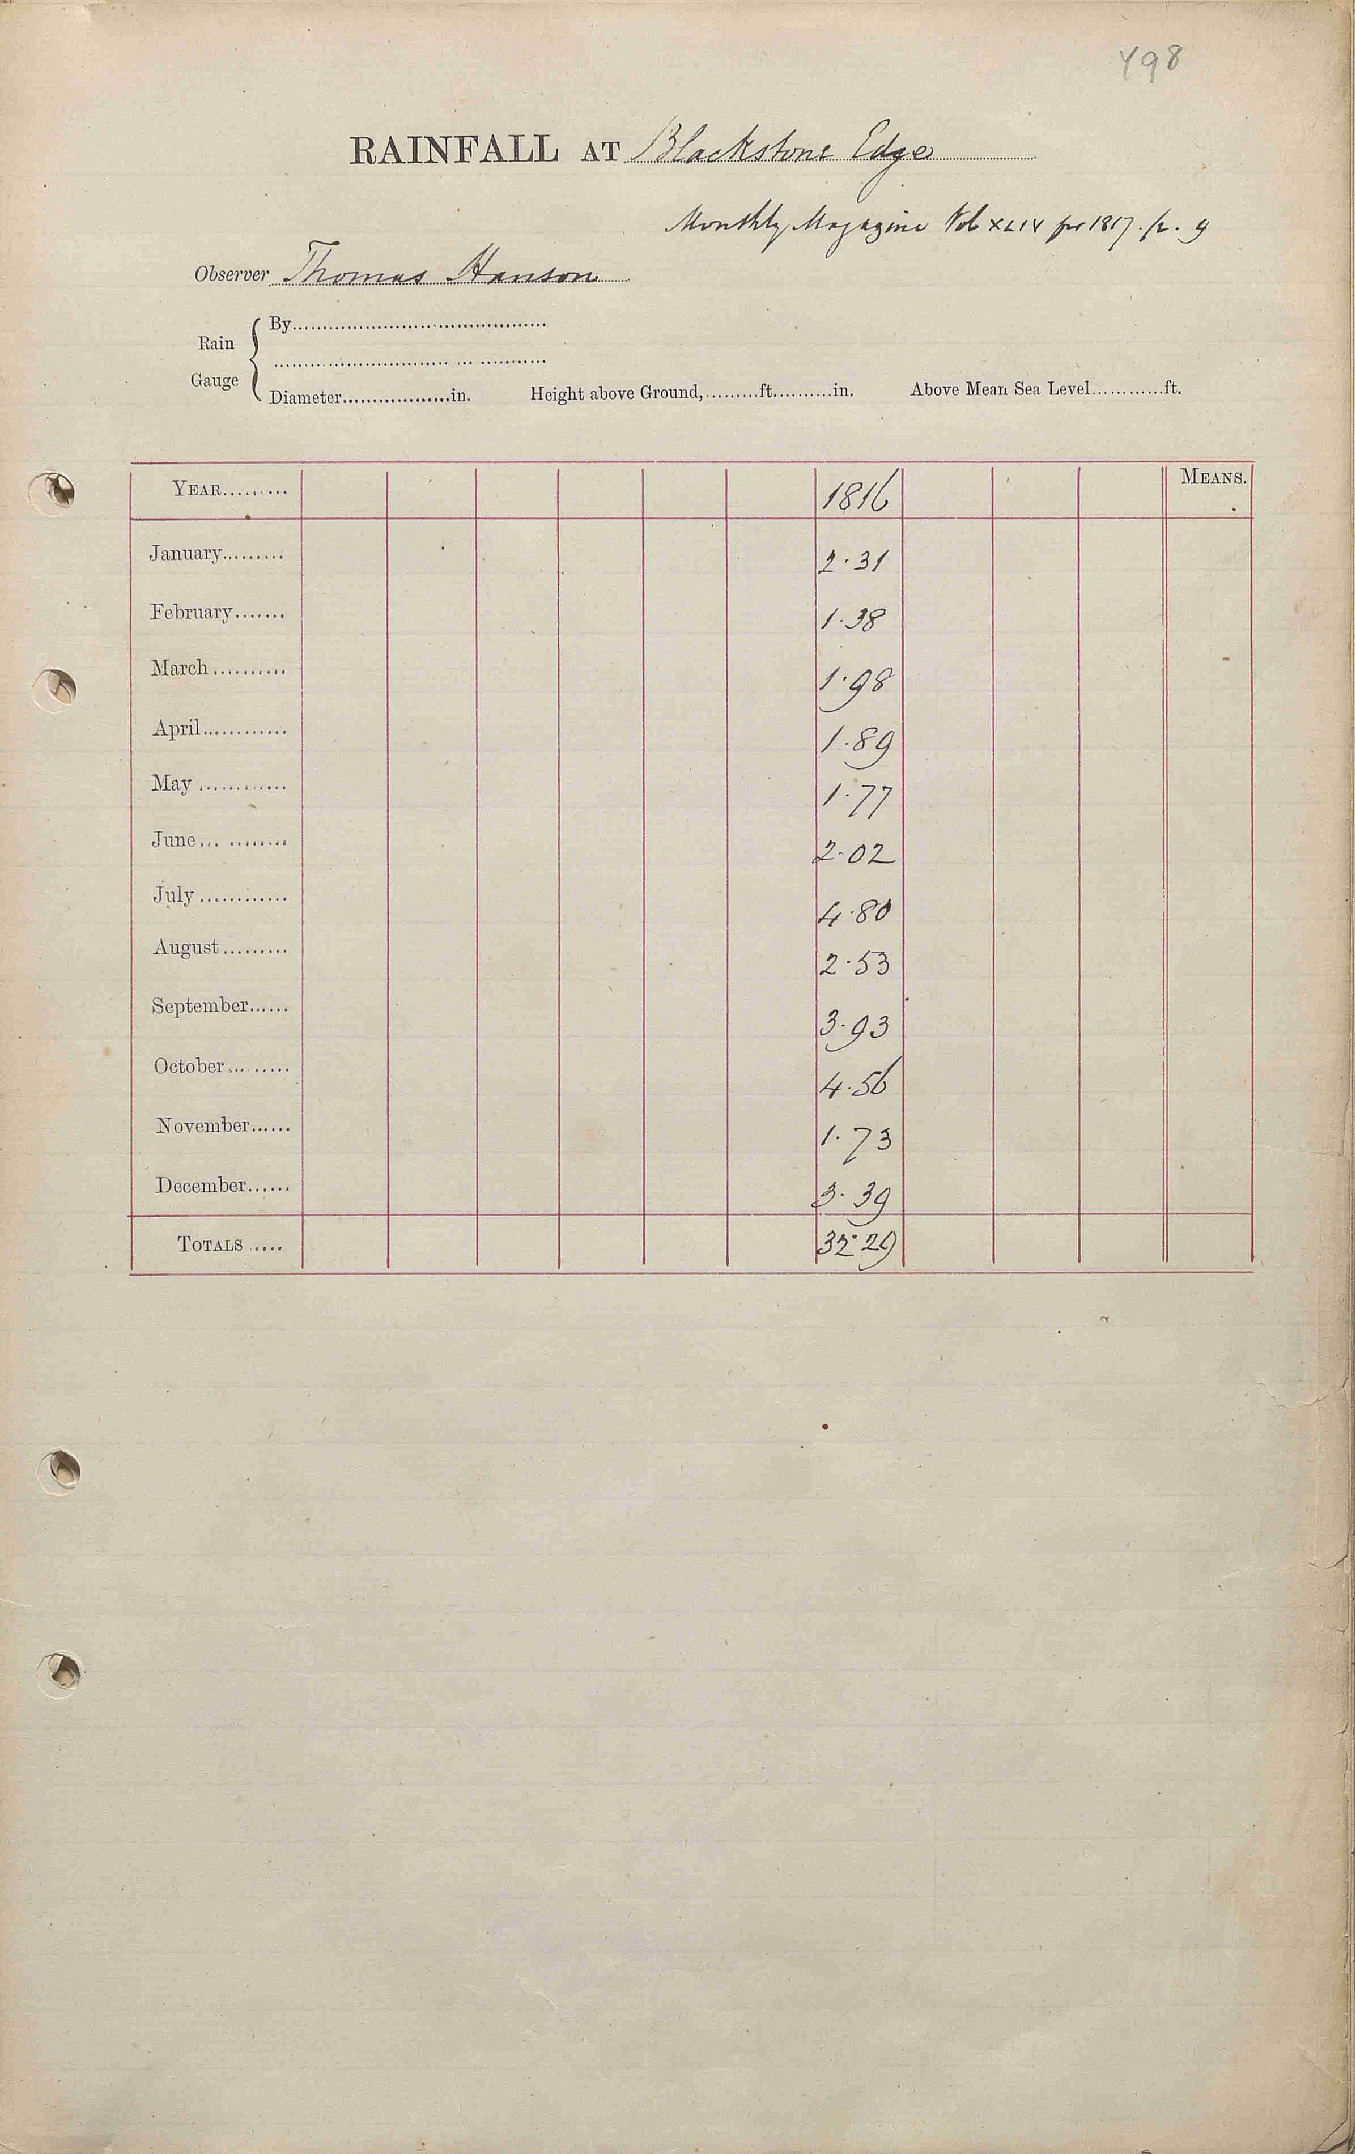 498
RAINFALL AT Blackstone Edge
Monthly Magazine Vol XLIV for 1817. p. 9
Observer Thomas Hanson
Rain Gauge { By
Diameter in. Height above Ground, ft. in. Above Mean Sea Level ft.
YEAR 1816 MEANS.
January 2.31
February 1.38
March 1.98
April 1.89
May 1.77
June 2.02
July 4.80
August 2.53
September 3.93
October 4.56
November 1.73
December 3.39
TOTALS 32.29